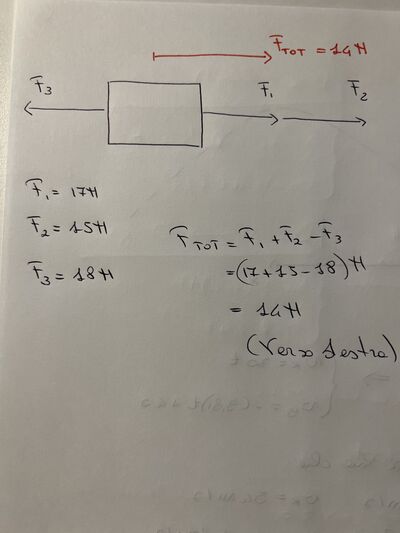 F̅TOT = 14N
F̅3
F̅1
F̅2
F̅1 = 17N
F̅2 = 15N
F̅3 = 18N
F̅TOT = F̅1 + F̅2 - F̅3
= (17+15-18) N
= 14N
(verso destra)